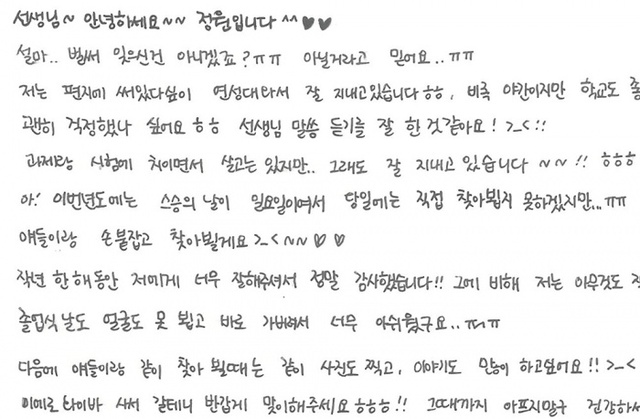 선생님~ 안녕하세요~~ 정원입니다^^♥♥
설마.. 벌써 잊으신건 아니겠죠?ㅠㅠ 아닐거라고 믿어요..ㅠㅠ
저는 편지에 써있다싶이 연성대와서 잘 지내고있습니다ㅎㅎ, 비록 야간이지만 학교도 좋
괜히 걱정했나 싶어요ㅎㅎ 선생님 말씀 듣기를 잘 한 것같아요! >_<!!
과제랑 시험에 치이면서 살고는 있지만.. 그래도 잘 지내고 있습니다~~!! ㅎㅎㅎ
아! 이번년도에는 스승의 날이 일요일이여서 당일에는 직접 찾아뵙지 못하겠지만...ㅠㅠ
얘들이랑 손붙잡고 찾아뵐게요>_<~~♡♡
작년 한해동안 저에게 너무 잘해주셔서 정말 감사했습니다!! 그에 비해 저는 아무것도
졸업식날도 얼굴도 못 뵙고 바로 가버려서 너무 아쉬웠구요..ㅠㅠ
다음에 얘들이랑 같이 찾아 뵐때는 같이 사진도찍고, 이야기도 많이 하고싶어요!! >_<
이제로 사서 갈테니 반갑게 맞이해주세요ㅎㅎㅎ!! 그때까지 아프지말구 건강하세